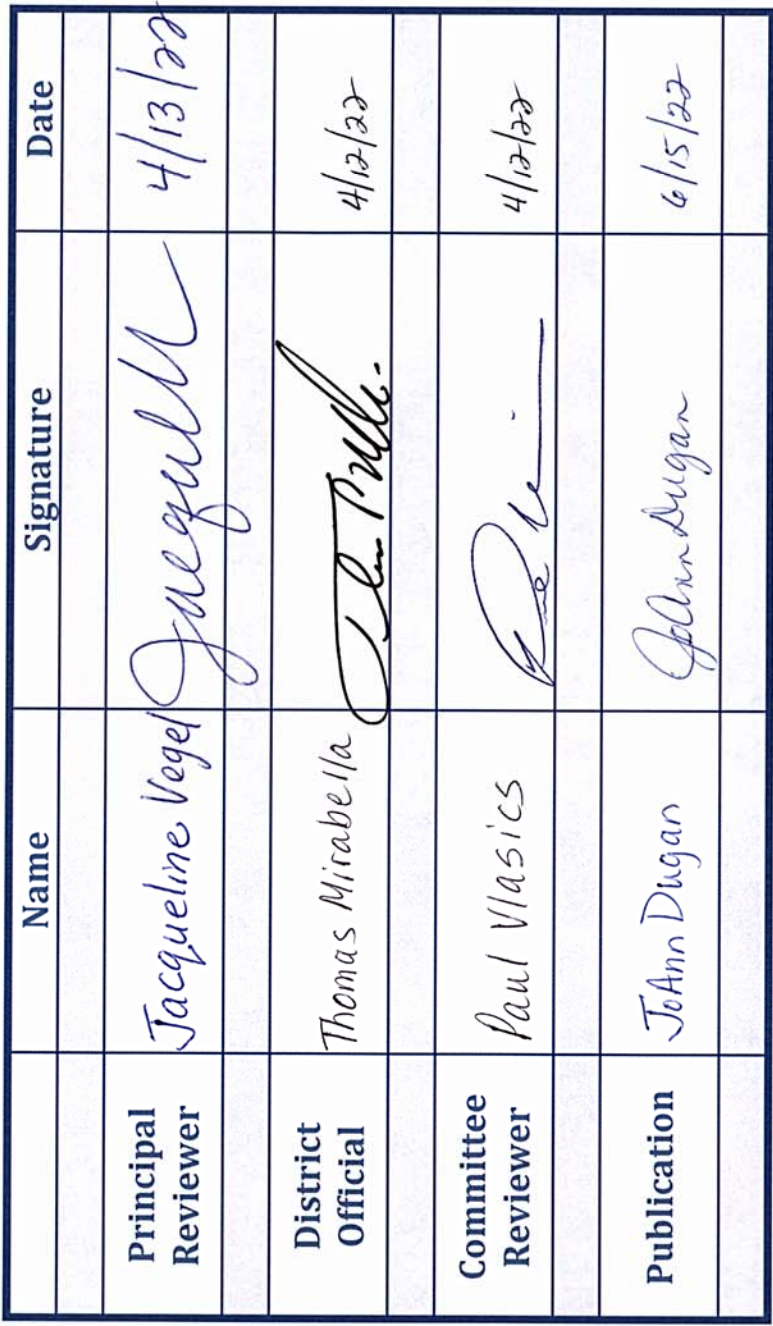 Name Signature Date
Principal Reviewer Jacqueline Vogel 4/13/22
District Official Thomas Mirabella 4/12/22
Committee Reviewer Paul Vlasics 4/12/22
Publication JoAnn Dugan JoAnn Dugan 6/15/22